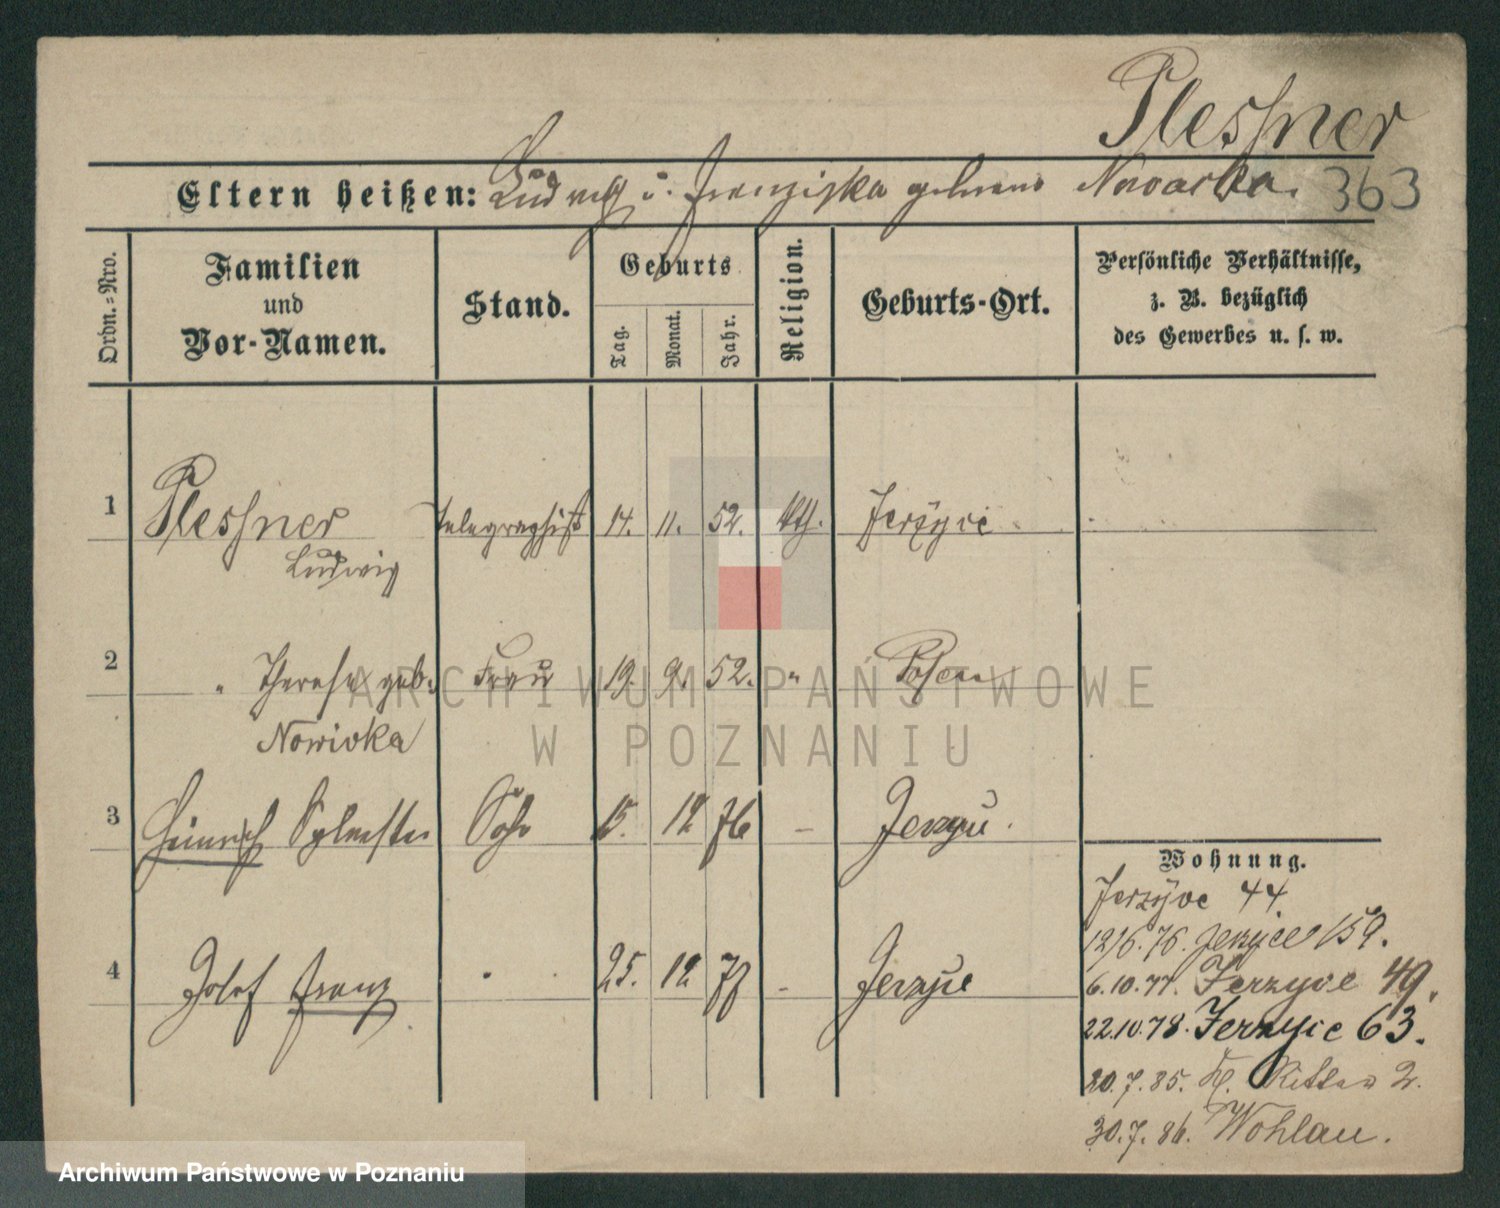 Plessner
Eltern heißen: Ludwig u. Franziska geborene Nowacka. 363
Ordn.-Nro.
Familien und Vor-Namen.
Stand.
Geburts
Tag.
Monat.
Jahr.
Religion.
Geburts-Ort.
Persönliche Verhältnisse,
z. B. bezüglich
des Gewerbes u. s. w.
1 Plessner Telegraphist 14. 11. 52. kth. Jerzyce
Ludwig
2 " Therese geb. Frau 19. 9. 52. " Posen
Nowicka
3 Heinrich Sylvester Sohn 15. 12 76 – Jerzyce.
4 Josef Franz " 25. 12 77 – Jerzyce
Wohnung.
Jerzyce 44
12/6. 76. Jerzyce 159.
6.10.77. Jerzyce 49.
22.10.78. Jerzyce 63.
20.7.85. Kl. Ritter 2.
30.7.86. Wohlau.
ARCHIWUM PAŃSTWOWE
W POZNANIU
Archiwum Państwowe w Poznaniu